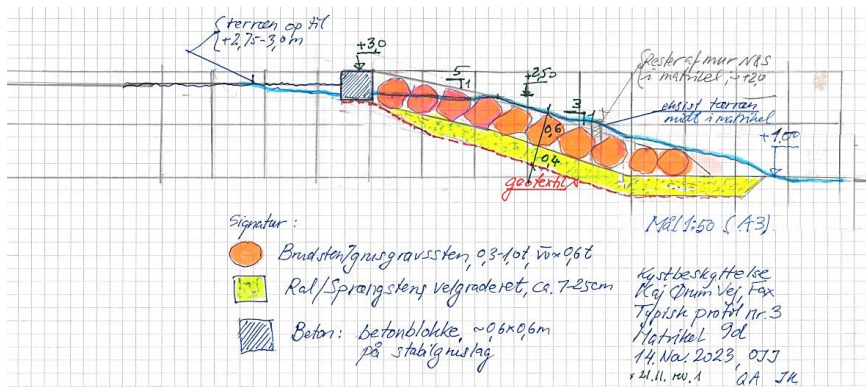 terræn op til
+2,75-3,0m
+3,0
5
1
+2,50
3
1
Rester af mur N&S
i matrikel, ~+2,0
eksist terræn
midt i matrikel
+1,00
0,6
0,4
geotextil
Mål 1:50 (A3).
Signatur:
Brudsten/grusgravssten, 0,3-1,0t, w≈0,6t
Ral/Sprængstens velgraderet, ca. 7-25cm
Beton: betonblokke, ~0,6x0,6m
på stabilgruslag
Kystbeskyttelse
Kaj Ørum Vej, Fax
Typisk profil nr. 3
Matrikel 9d
14. Nov. 2023, OJJ
21.11. rev. 1 QA JK